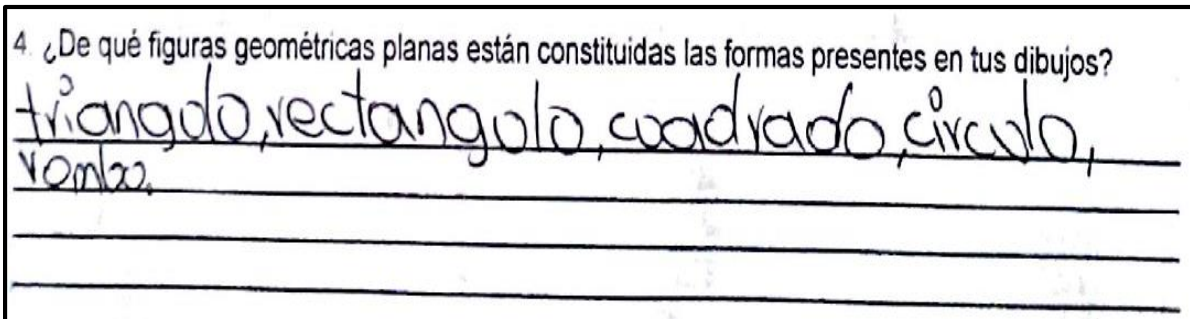 4. ¿De qué figuras geométricas planas están constituidas las formas presentes en tus dibujos?
triangulo, rectangulo, cuadrado, circulo,
rombo.